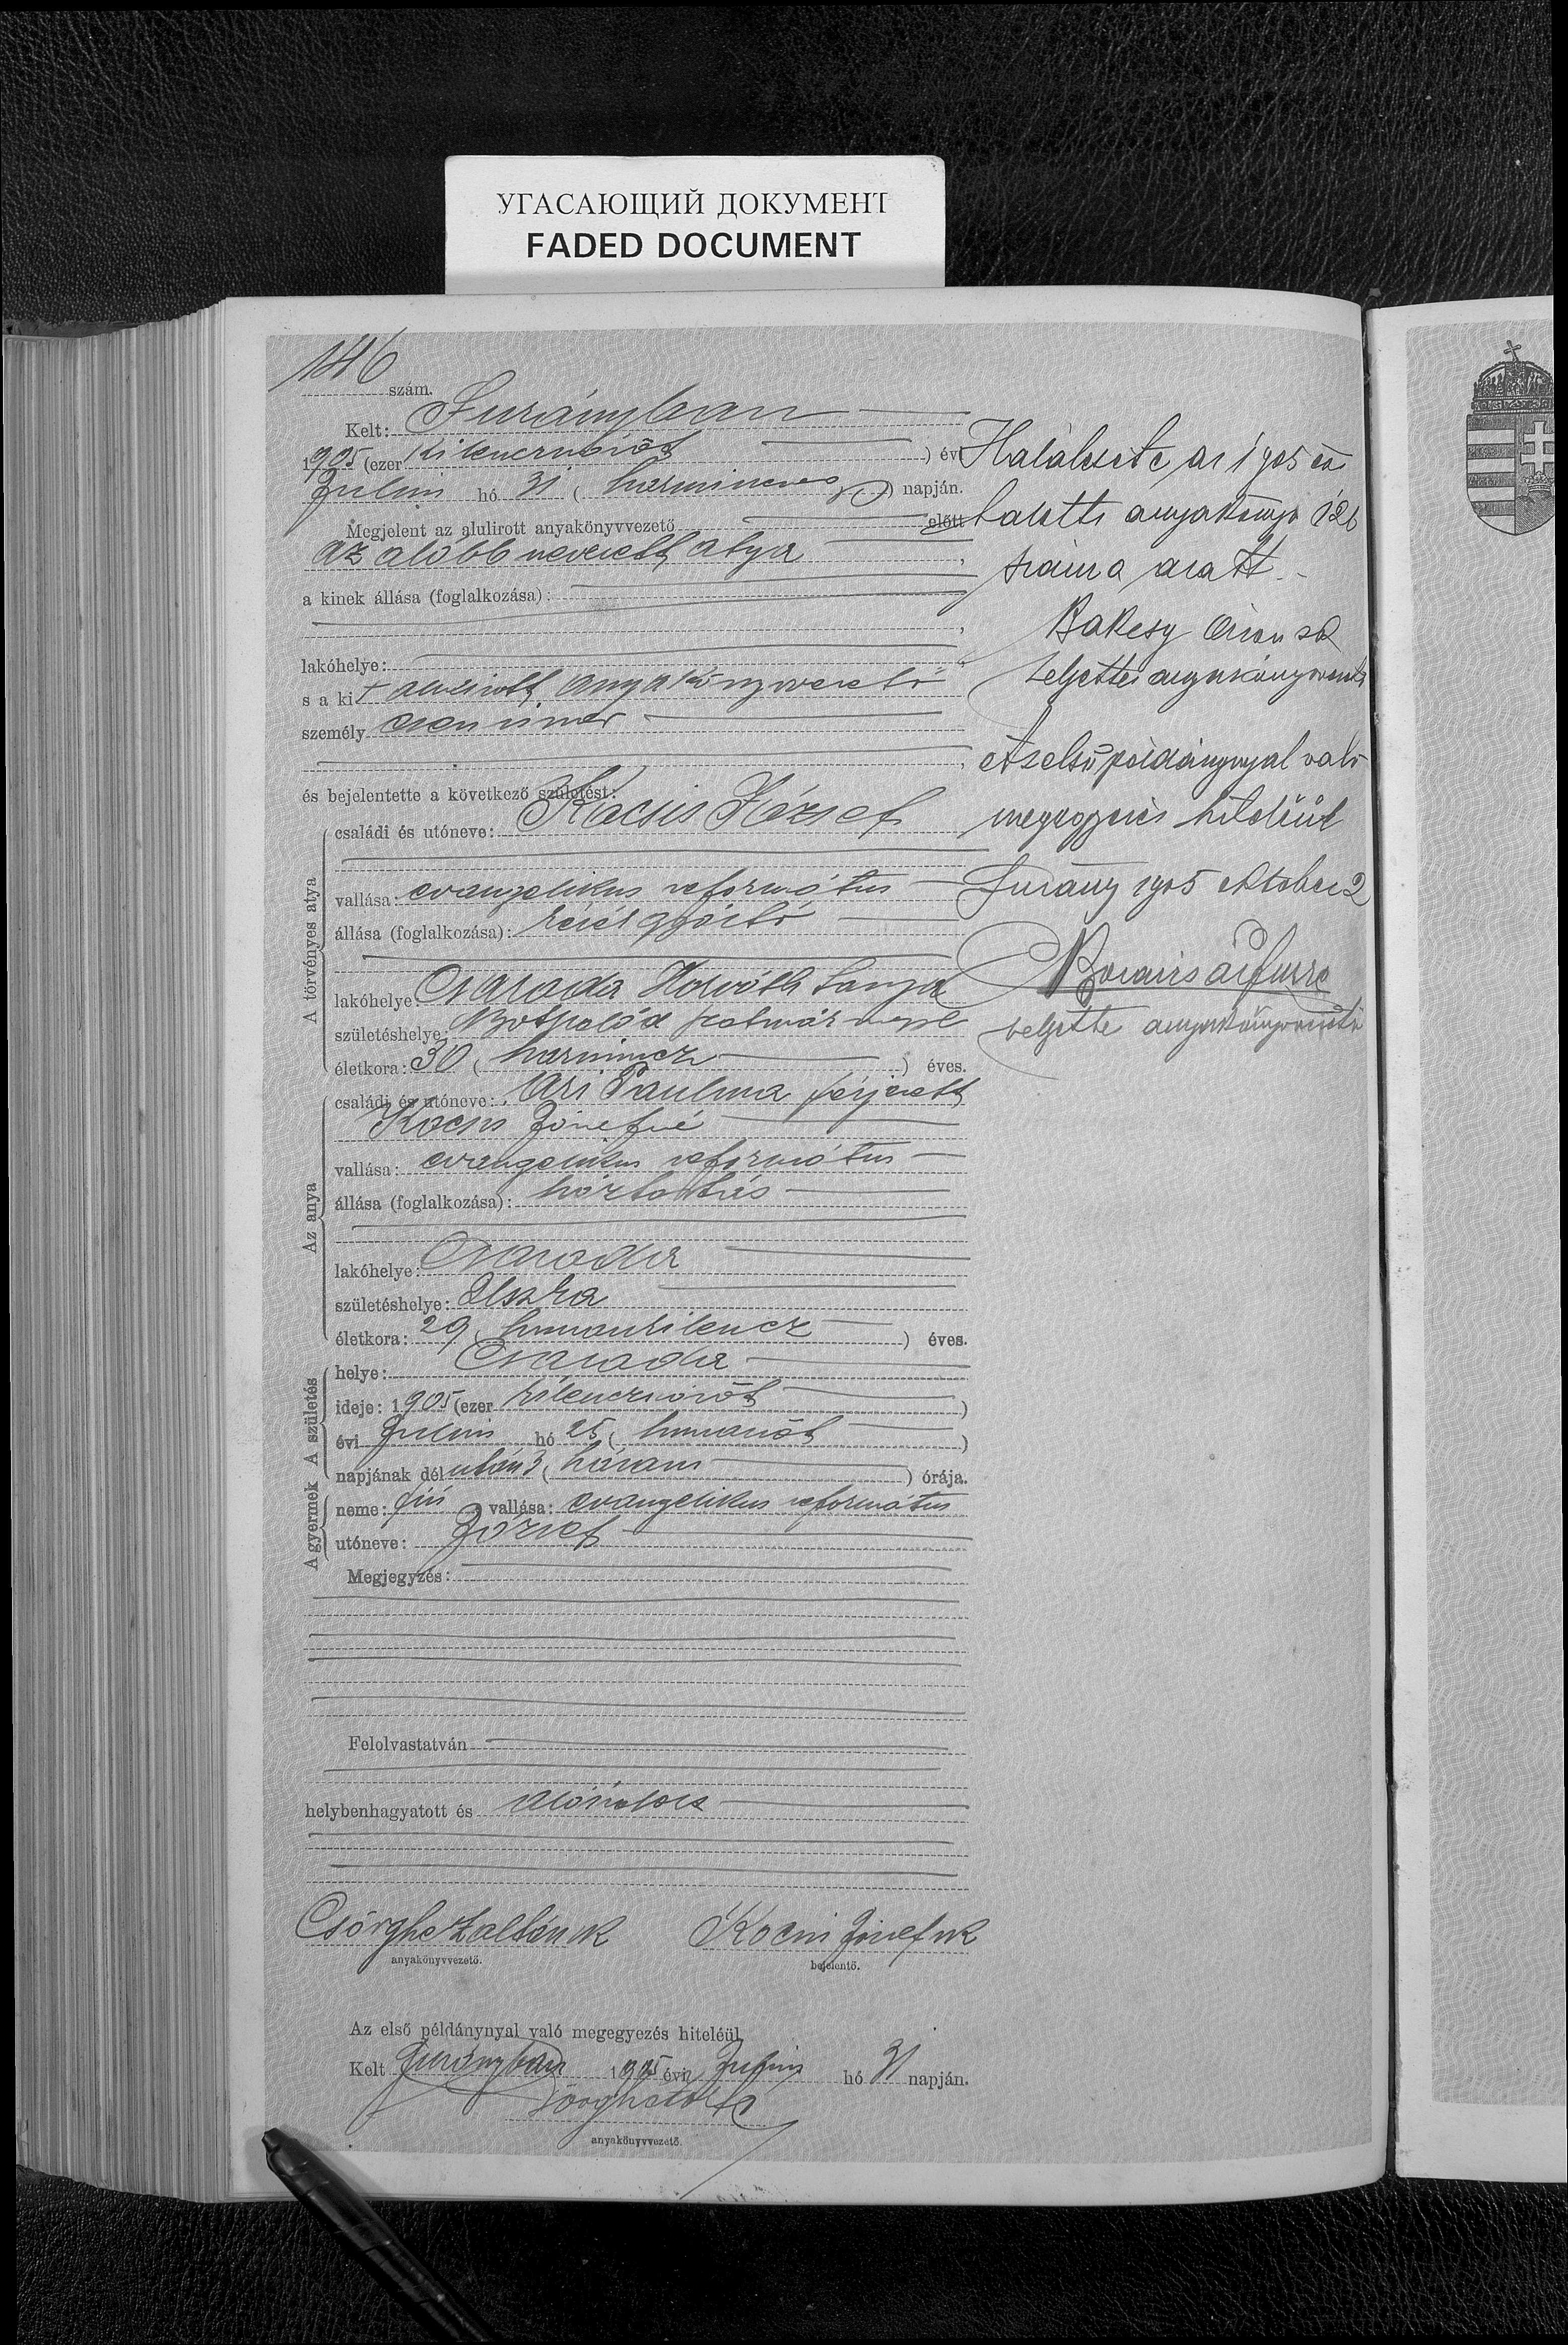 УГАСАЮЩИЙ ДОКУМЕНТ
FADED DOCUMENT
146 szám.
Kelt: Surányban
1905 (ezer kilenczszázöt ) évi
Julius hó 31 ( harmincz ) napján.
Megjelent az alulirott anyakönyvvezető előtt
az alább nevezett atya ,
a kinek állása (foglalkozása):
,
lakóhelye: ,
s a ki t alulirott anyakönyvvezető
személy esen ismer
,
és bejelentette a következő születést:
A törvényes atya
családi és utóneve: Kocsis József
vallása: evangelikus református
állása (foglalkozása):
lakóhelye: Csaroda Horváth tanya
születéshelye: Botpalád Szatmár megye
életkora: 30 ( harmincz ) éves.
Az anya
családi és utóneve: Ari Paulina férjezett
Kocsis Józsefné
vallása: evangelikus református
állása (foglalkozása): háztartás
lakóhelye: Csaroda
születéshelye: Uszka
életkora: 29 ( huszonkilencz ) éves.
A gyermek A születés
helye: Csaroda
ideje: 1905 (ezer kilenczszázöt )
évi Julius hó 25 ( huszonöt )
napjának dél után 3 ( három ) órája.
neme: fiú vallása: evangelikus református
utóneve: József
Megjegyzés:
Felolvastatván
helybenhagyatott és aláiratott
Csörghe Zoltán sk Kocsis József sk
anyakönyvvezető. bejelentő.
Az első példánynyal való megegyezés hiteléül
Kelt Surányban 1905 évi Julius hó 31 napján.
anyakönyvvezető.
Halálesete az 1905 évi
halotti anyakönyv 126
száma alatt.
sk
helyettes anyakönyvvezető
Az első példánynyal való
megegyezés hiteléül
Surány 1905 oktober 2
helyettes anyakönyvvezető